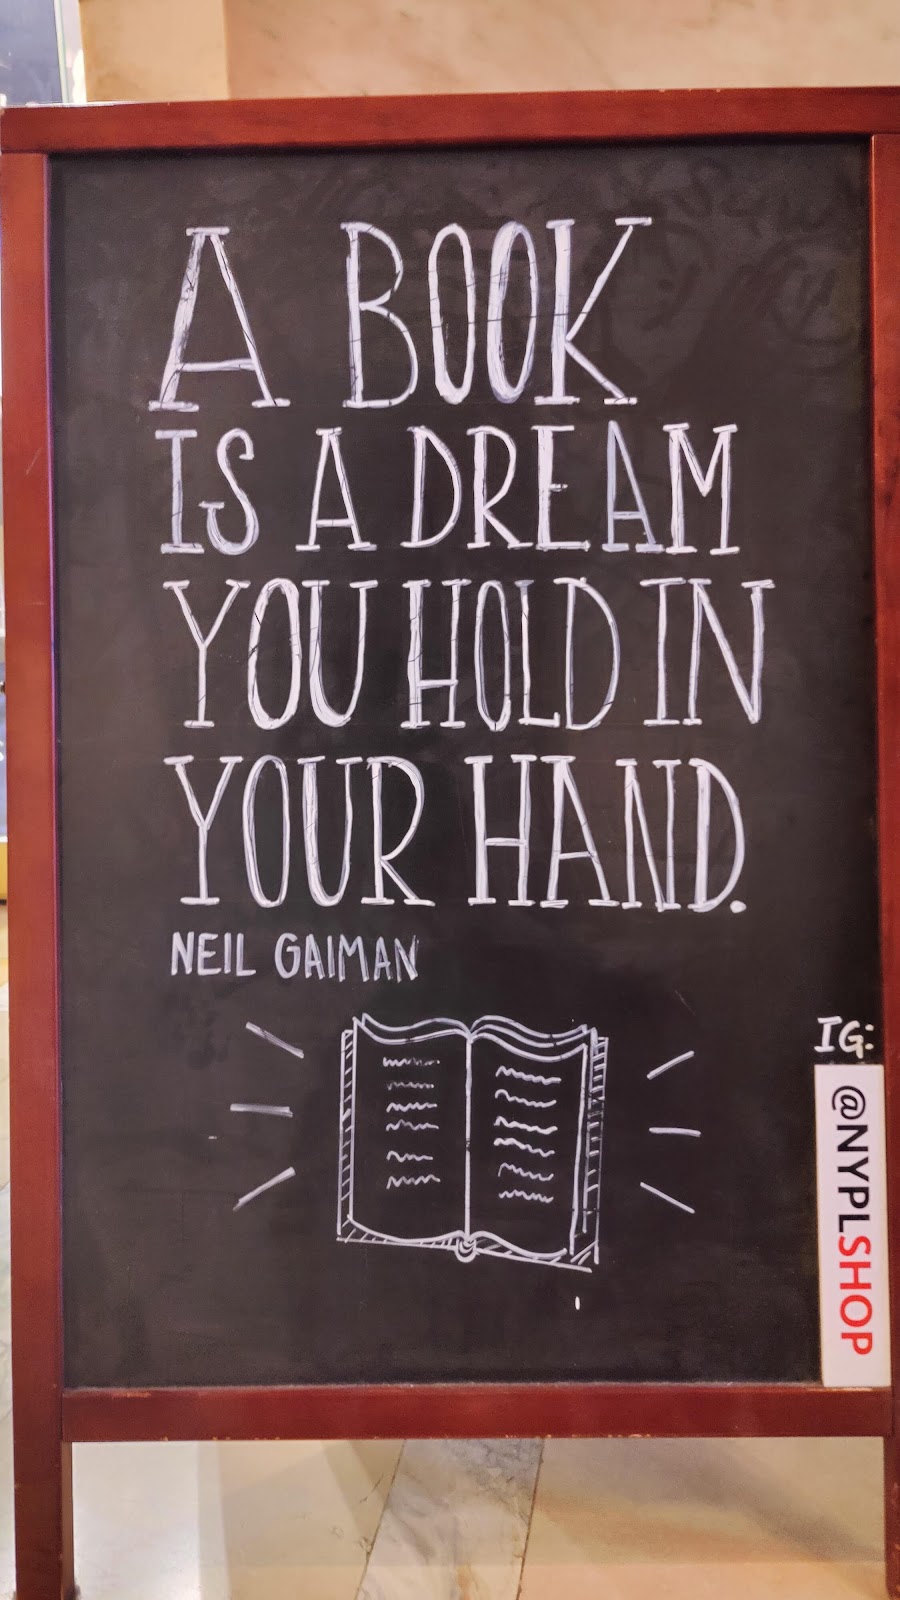 A BOOK
IS A DREAM
YOU HOLD IN
YOUR HAND.
NEIL GAIMAN
IG:
@NYPLSHOP